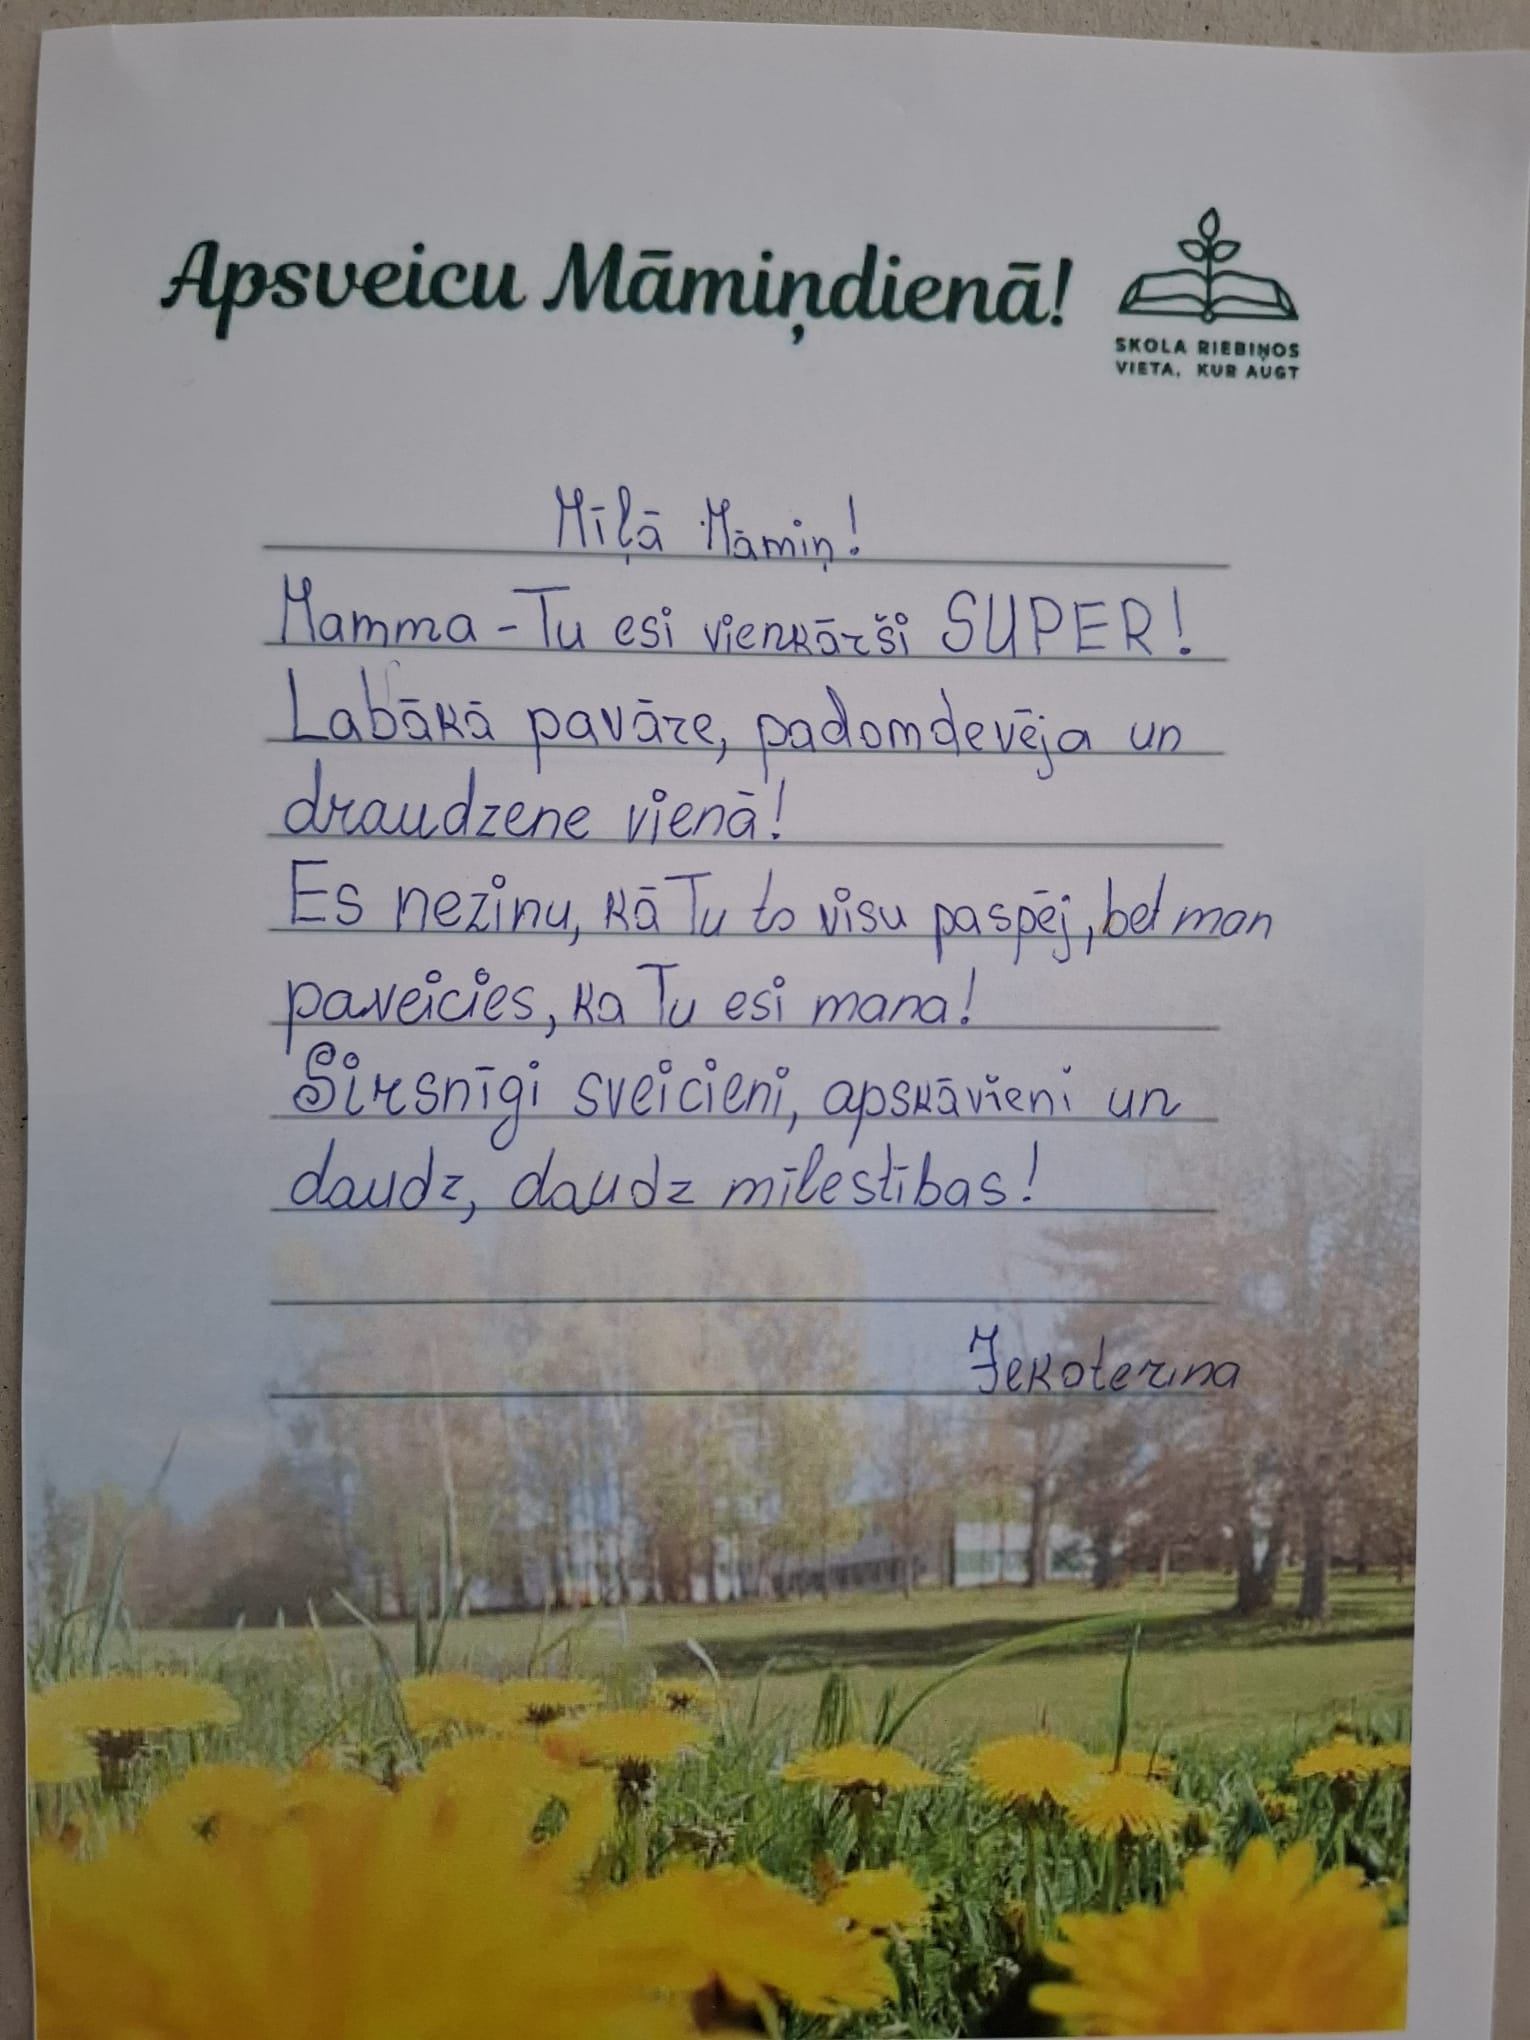 Apsveicu Māmiņdienā!
SKOLA RIEBIŅOS
VIETA, KUR AUGT
Mīļā Māmiņ!
Mamma - Tu esi vienkārši SUPER!
Labākā pavāre, padomdevēja un
draudzene vienā!
Es nezinu, kā Tu to visu paspēj, bet man
paveicies, ka Tu esi mana!
Sirsnīgi sveicieni, apskāvieni un
daudz, daudz mīlestības!
Jekaterina